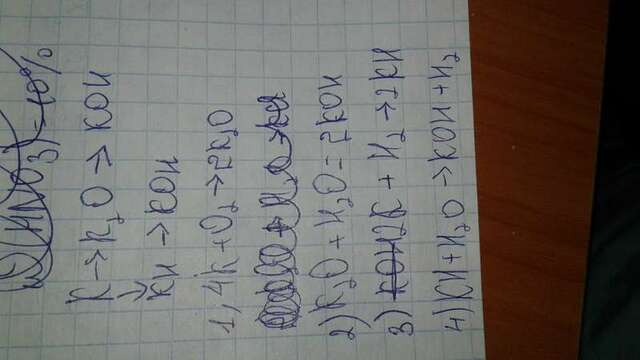 ω(HNO3)=10%
K → K2O → KOH
↓
KH → KOH
1, 4K + O2 → 2K2O
2) K2O + H2O = 2KOH
3) 2K + H2 → 2KH
4) KH + H2O → KOH + H2